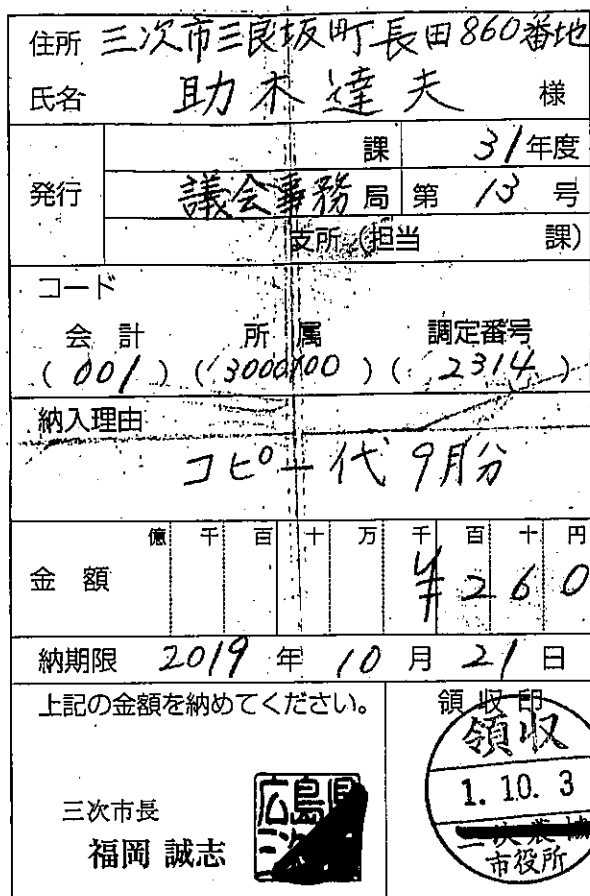 住所 三次市三良坂町長田860番地
氏名 助木達夫 様
発行
課 31年度
議会事務局 第 13 号
支所(担当 課)
コード
会計 所属 調定番号
(001) (3000100) (2314)
納入理由
コピー代 9月分
億 千 百 十 万 千 百 十 円
金額 ¥260
納期限 2019年10月21日
上記の金額を納めてください。
領収印
領収
1.10.3
市役所
三次市長
福岡 誠志
広島県